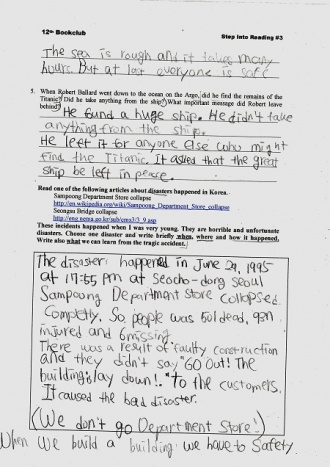 12th Bookclub
Step Into Reading #3
The sea is rough and it takes many
hours. But at last everyone is safe
5. When Robert Ballard went down to the ocean on the Argo, did he find the remains of the
Titanic? Did he take anything from the ship? What important message did Robert leave
behind?
He found a huge ship. He didn't take
anything from the ship.
He left it for anyone else who might
find the Titanic. It asked that the great
ship be left in peace.
Read one of the following articles about disasters happened in Korea.
Sampoong Department Store collapse
http://en.wikipedia.org/wiki/Sampoong_Department_Store_collapse
Seongsu Bridge collapse
These incidents happened when I was very young. They are horrible and unfortunate
disasters. Choose one disaster and write briefly when, where and how it happened.
Write also what we can learn from the tragic accident.
The disaster happened in June 29, 1995
at 17:55 pm at seocho-dong seoul
Sampoong Department Store collapsed
Completly. So people was 501 dead, 937
injured and 6 missing.
There was a result of faulty construction
and they didn't say "GO Out! The
building lay down!." to the customers.
It caused the bad disaster.
(We don't go Department Store!)
When we build a building we have to Safety